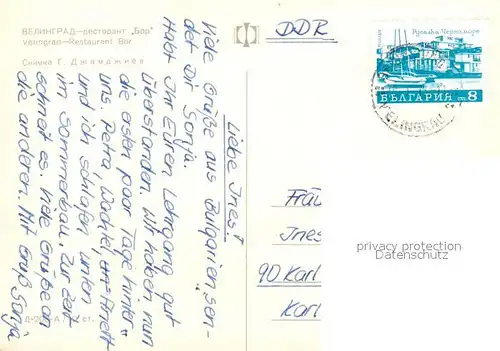 ВЕЛИНГРАД—ресторант „Бор“
Velingrad—Restaurant Bor
Снимка Г. Джамджиев
Liebe Ines!
Viele Grüße aus Bulgarien sen-
det Dir Sonja.
Habt Ihr Euren Lehrgang gut
überstanden. Wir haben nun
die ersten paar Tage hinter
uns. Petra, Wachtel, Annett
und ich schlafen unten
im Sommerbau. Zur Zeit
schneit es. Viele Grüße an
die anderen. Mit Gruß Sonja
DDR
Русалка Черноморе
поща
БЪЛГАРИЯ ст. 8
VELINGRAD
Frau
Ines
90 Karl
Karl
privacy protection
Datenschutz